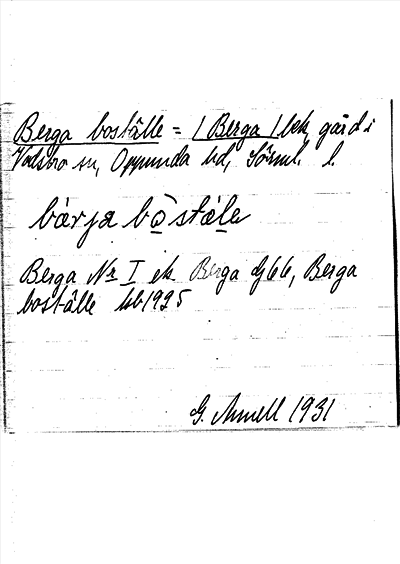 Berga boställe = | Berga | ek, gård i
Vadsbro sn, Oppunda hd, Sörml. l.
bàrja bòstäle
Berga No I ek Berga Gj66, Berga
boställe hb 1925
G. Annell 1931